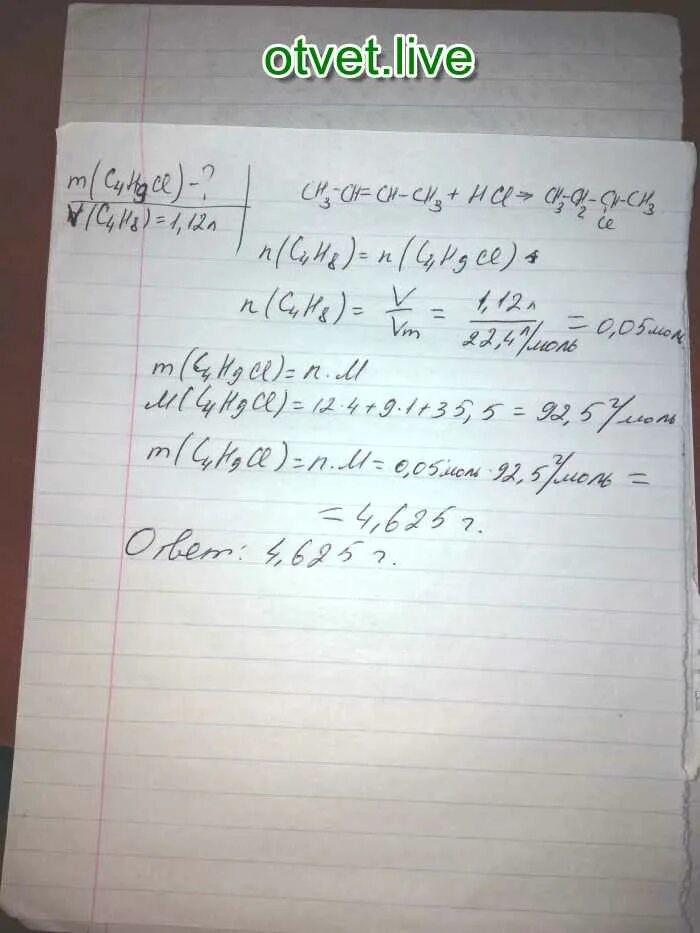 otvet.live
m(C₄H₉Cl)-?
V(C₄H₈)=1,12л
CH₃-CH=CH-CH₃ + HCl → CH₃-CH₂-CH-CH₃
Cl
n(C₄H₈) = n(C₄H₉Cl)
n(C₄H₈) = V/Vm = 1,12л/22,4л/моль = 0,05моль
m(C₄H₉Cl)=n·M
M(C₄H₉Cl)=12·4+9·1+35,5=92,5г/моль
m(C₄H₉Cl)=n·M=0,05моль·92,5г/моль=
=4,625 г.
Ответ: 4,625 г.